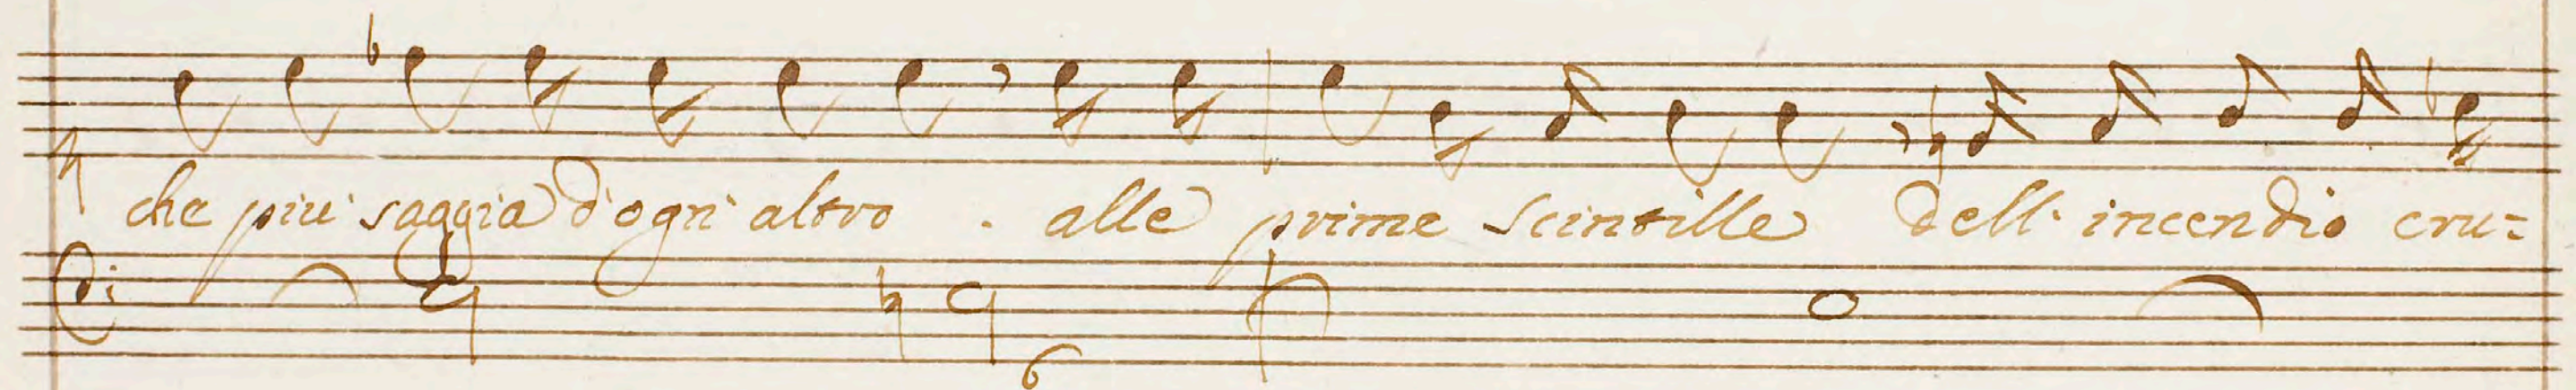 che piu' saggia d'ogn' altro . alle prime scintille dell' incendio cru=
6